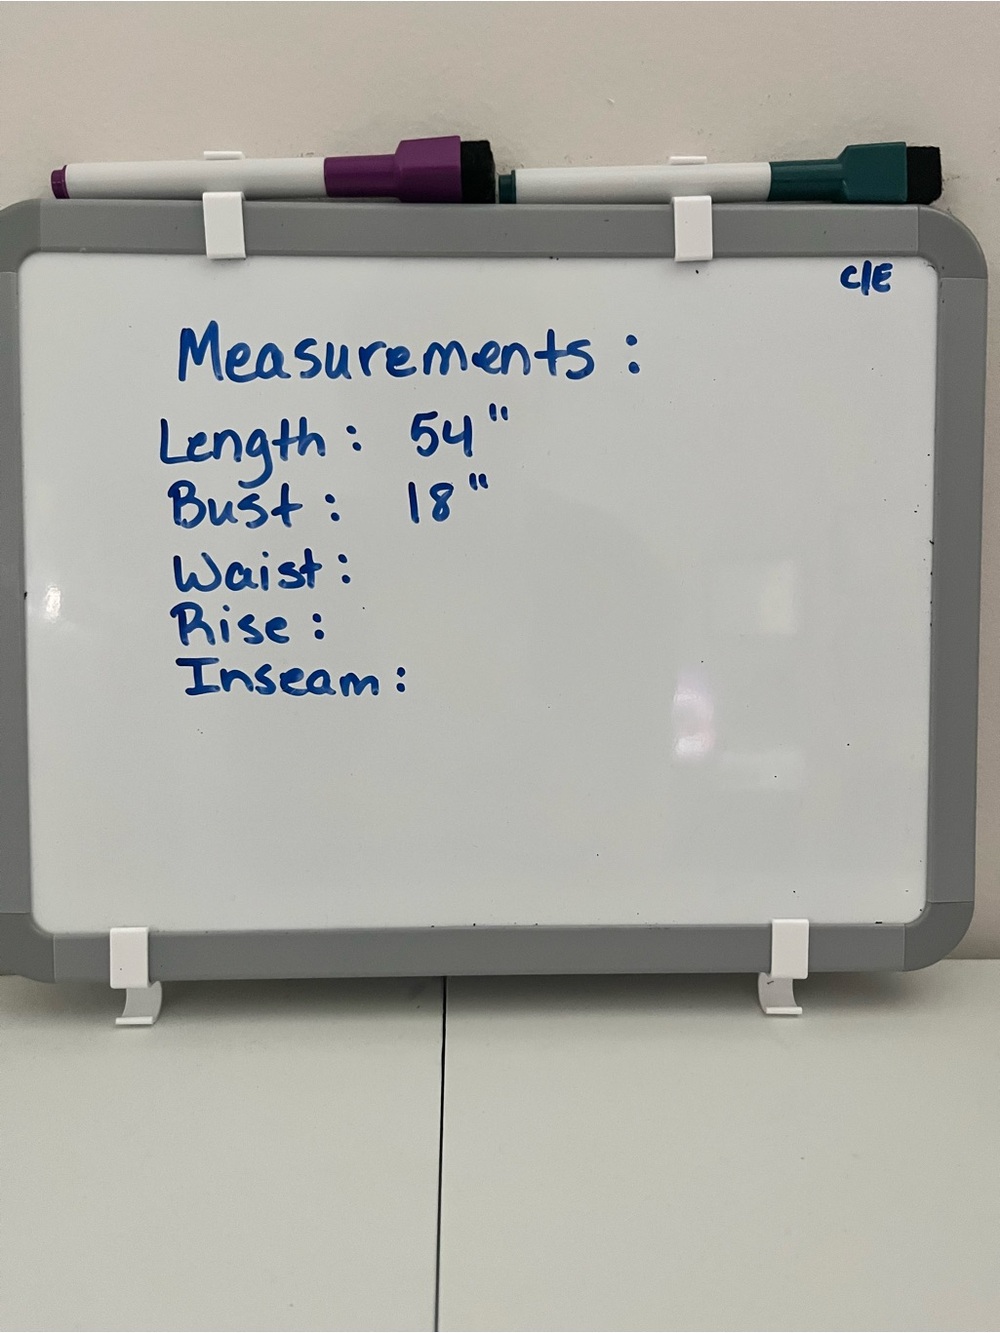 C/E
Measurements:
Length: 54"
Bust: 18"
Waist:
Rise:
Inseam: